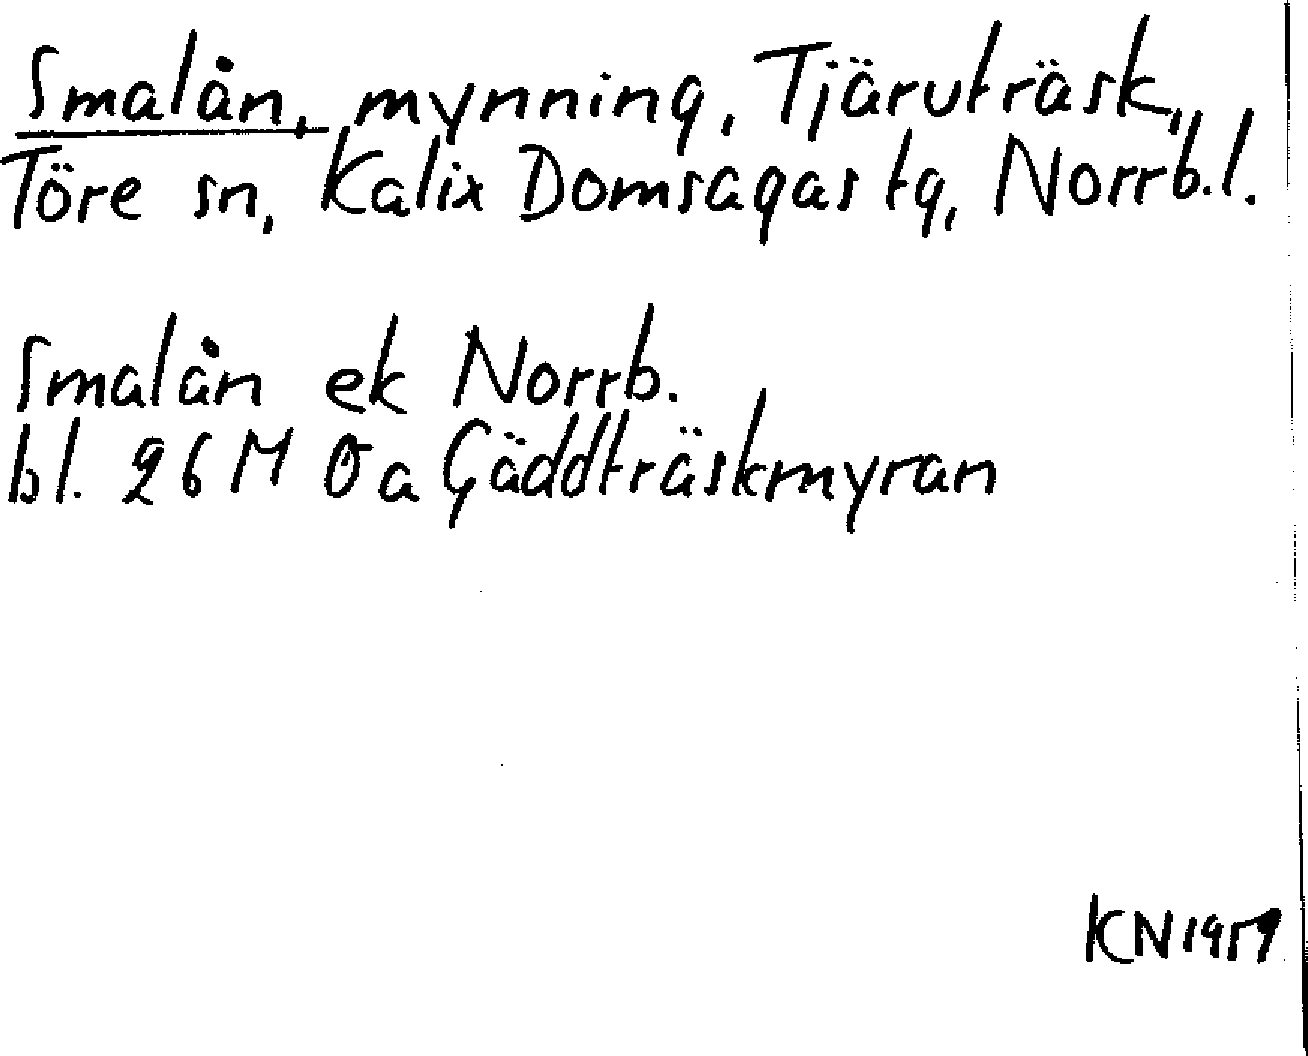 Smalån, mynning, Tjäruträsk,
Töre sn, Kalix Domsagas tg, Norrb.l.
Smalån ek Norrb.
bl. 26 M Ö a Gäddträskmyran
KN 1959